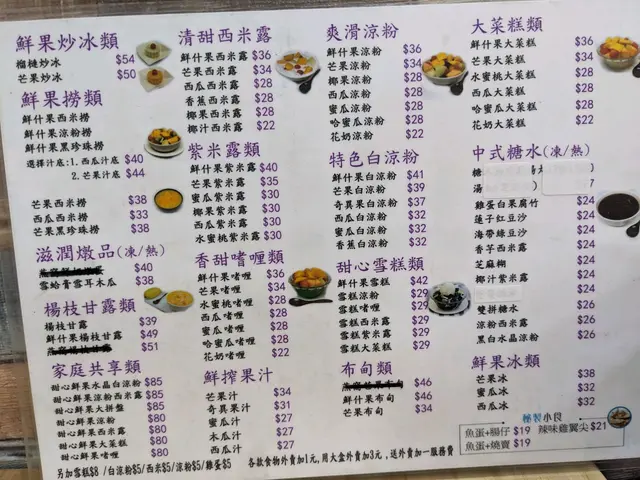 鮮果炒冰類
榴槤炒冰 $54
芒果炒冰 $50
鮮果撈類
鮮什果西米撈
鮮什果涼粉撈
鮮什果黑珍珠撈
選擇汁底:1.西瓜汁底 $40
2.芒果汁底 $44
芒果西米撈 $38
西瓜西米撈 $33
芒果黑珍珠撈 $38
滋潤燉品(凍/熱)
$40
雪蛤膏雪耳木瓜 $38
楊枝甘露類
楊枝甘露 $39
鮮什果楊枝甘露 $49
$51
家庭共享類
甜心鮮果水晶白涼粉 $85
甜心鮮果涼粉西米露 $85
甜心鮮果大拼盤 $85
甜心鮮果涼粉 $80
甜心鮮果西米露 $80
甜心鮮果大菜糕 $80
甜心鮮果嗜喱 $80
清甜西米露
鮮什果西米露 $36
芒果西米露 $34
西瓜西米露 $28
香蕉西米露 $28
椰果西米露 $28
椰汁西米露 $22
紫米露類
鮮什果紫米露 $40
芒果紫米露 $35
西瓜紫米露 $30
椰果紫米露 $30
蜜瓜紫米露 $30
水蜜桃紫米露 $30
香甜嗜喱類
鮮什果嗜喱 $36
芒果嗜喱 $34
水蜜桃嗜喱 $28
西瓜嗜喱 $28
蜜瓜嗜喱 $28
椰果嗜喱 $28
花奶嗜喱 $22
鮮搾果汁
芒果汁 $34
奇異果汁 $31
蜜瓜汁 $27
木瓜汁 $27
西瓜汁 $27
爽滑涼粉
鮮什果涼粉 $36
芒果涼粉 $34
椰果涼粉 $28
西瓜涼粉 $28
蜜瓜涼粉 $28
哈蜜瓜涼粉 $28
花奶涼粉 $22
特色白涼粉
鮮什果白涼粉 $41
芒果白涼粉 $39
奇異果白涼粉 $37
西瓜白涼粉 $32
蜜瓜白涼粉 $32
香蕉白涼粉 $32
甜心雪糕類
鮮什果雪糕 $42
雪糕涼粉 $29
雪糕嗜喱 $29
雪糕西米露 $29
雪糕紫米露 $29
雪糕大菜糕 $29
布甸類
$46
鮮什果布甸 $46
芒果布甸 $34
大菜糕類
鮮什果大菜糕 $36
芒果大菜糕 $34
水蜜桃大菜糕 $28
西瓜大菜糕 $28
哈蜜瓜大菜糕 $28
花奶大菜糕 $22
中式糖水(凍/熱)
糖
湯 7
雞蛋白果腐竹 $24
蓮子紅豆沙 $24
海帶綠豆沙 $24
香芋西米露 $24
芝麻糊 $24
椰汁紫米露 $24
雙拼糖水 $26
涼粉西米露 $26
黑白水晶涼粉 $26
鮮果冰類
芒果冰 $38
蜜瓜冰 $32
西瓜冰 $32
秘製小食
魚蛋+腸仔 $19 辣味雞翼尖 $21
魚蛋+燒賣 $19
另加雪糕$8 /白涼粉$5/西米$5/涼粉$5/雞蛋$5
各款食物外賣加1元,用大盒外賣加3元,送外賣加一服務費